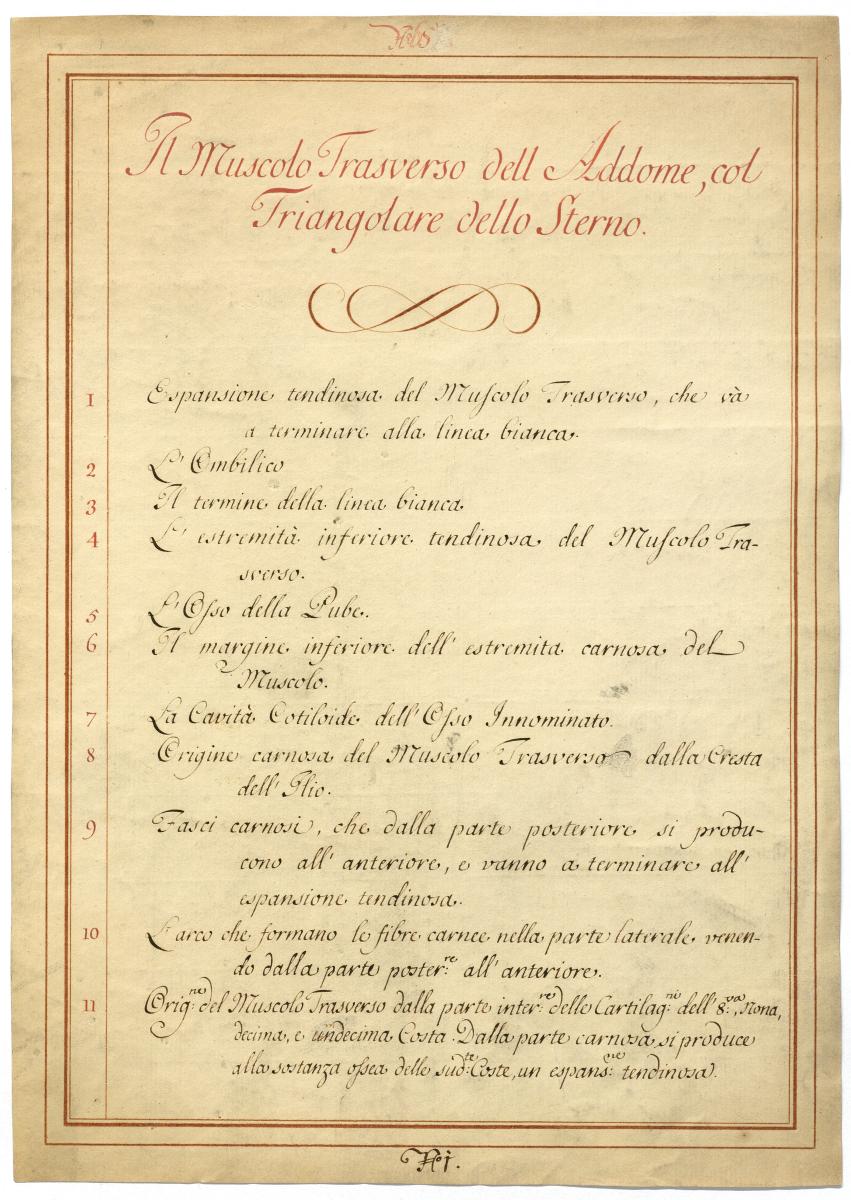 Il Muscolo Trasverso dell Addome, col
Triangolare dello Sterno.
1 Espansione tendinosa del Muſcolo Trasverso, che và
a terminare alla linea bianca.
2 L'Ombilico
3 Il termine della linea bianca
4 L'estremità inferiore tendinosa del Muſcolo Tra-
sverso.
5 L'Oſso della Pube.
6 Il margine inferiore dell'estremita carnosa del
Muscolo.
7 La Cavità Cotiloide dell'Oſso Innominato.
8 Origine carnosa del Muscolo Trasverso dalla Cresta
dell'Ilio.
9 Fasci carnosi, che dalla parte posteriore si produ-
cono all'anteriore, e vanno a terminare all'
espansione tendinosa.
10 L'arco che formano le fibre carnee nella parte laterale venen-
do dalla parte poster:re all'anteriore.
11 Orig:ne del Muscolo Trasverso dalla parte inter:re delle Cartilag:ni dell'8:va, Nona,
decima, e undecima Costa. Dalla parte carnosa si produce
alla sostanza oſsea delle sud:te Coste, un espans:ne tendinosa.
No. 1.